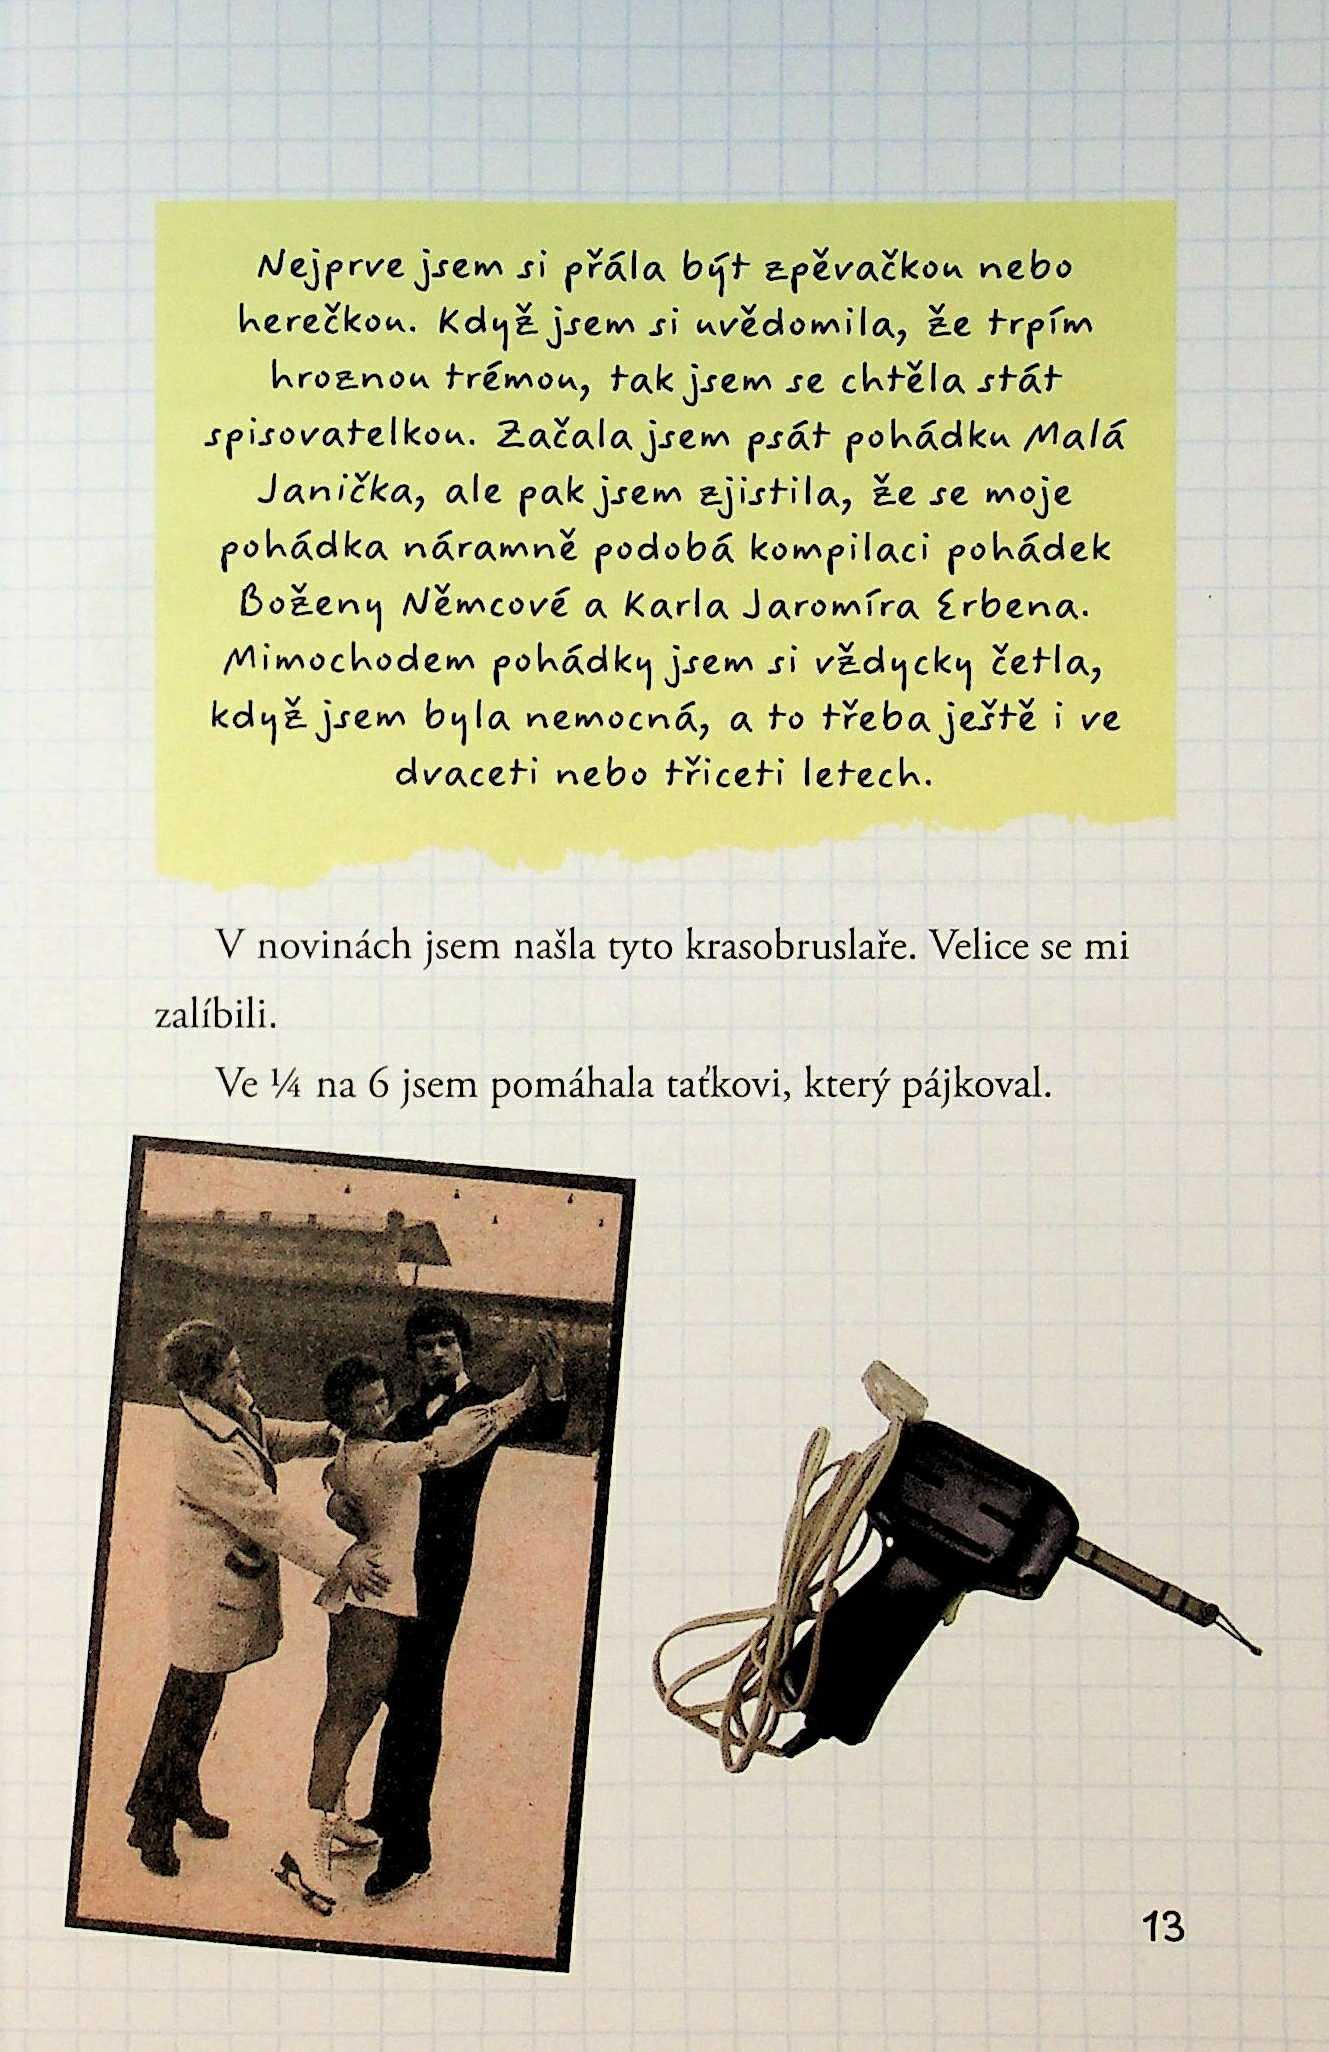 Nejprve jsem si přála být zpěvačkou nebo
herečkou. Když jsem si uvědomila, že trpím
hroznou trémou, tak jsem se chtěla stát
spisovatelkou. Začala jsem psát pohádku Malá
Janička, ale pak jsem zjistila, že se moje
pohádka náramně podobá kompilaci pohádek
Boženy Němcové a Karla Jaromíra Erbena.
Mimochodem pohádky jsem si vždycky četla,
když jsem byla nemocná, a to třeba ještě i ve
dvaceti nebo třiceti letech.
V novinách jsem našla tyto krasobruslaře. Velice se mi
zalíbili.
Ve ¼ na 6 jsem pomáhala taťkovi, který pájkoval.
13